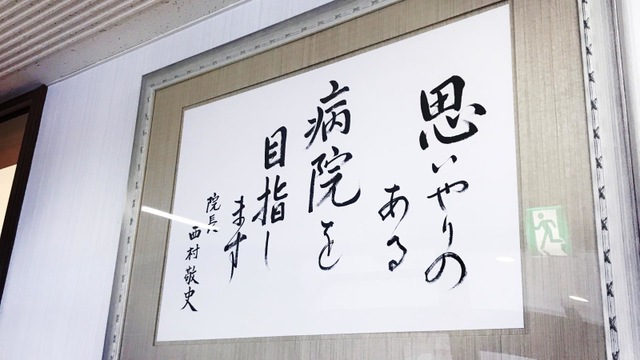 思いやりの
ある
病院を
目指し
ます
院長 西村敬史